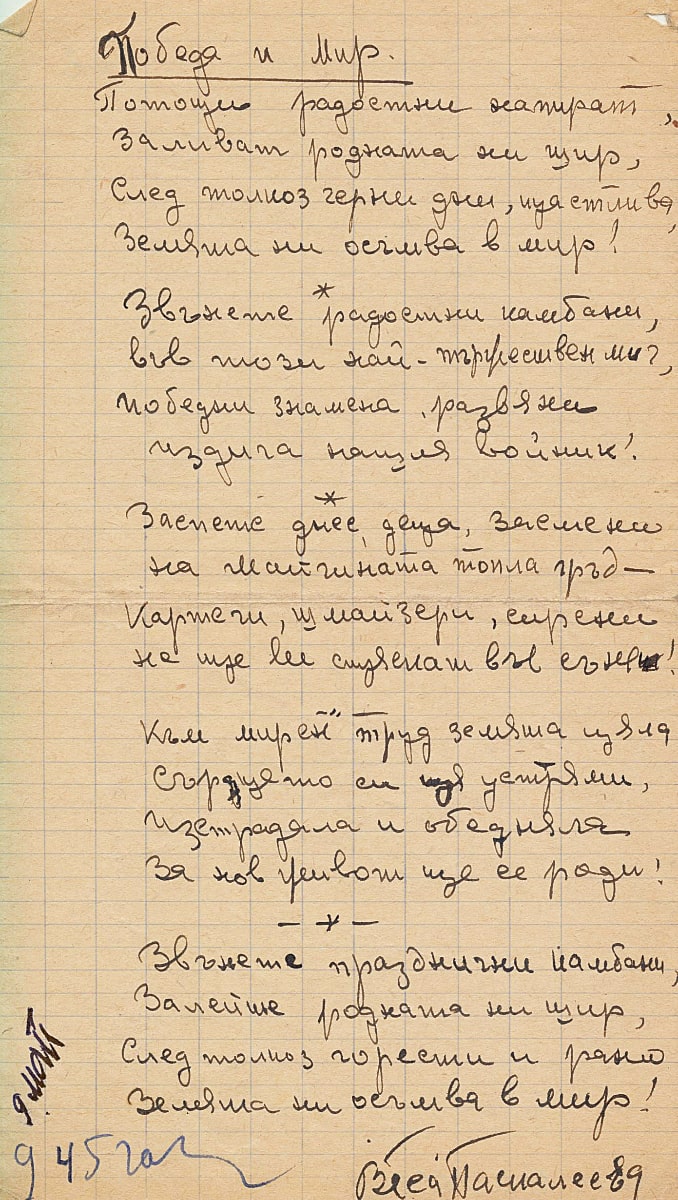 Победа и мир.
Потоци радостни напират,
Заливат родната ни шир,
След толкоз черни дни, щастлива,
Земята ни осъмва в мир!
*
Звънете радостни камбани,
във този най-тържествен миг,
победни знамена, развяни
издига нашия войник!
*
Заспете днес, деца, засмени
на майчината топла гръд —
Картечи, шмайзери, сирени
не ще ви стряскат във сънят!
"
Към мирен труд земята цяла
сърцето си ще устреми,
Изстрадала и обедняла
За нов живот ще се роди!
— * —
Звънете празднични камбани,
Залейте родната ни шир,
След толкоз горести и рани
Земята ни осъмва в мир!
9 май
945 год
Веса Паспалеева